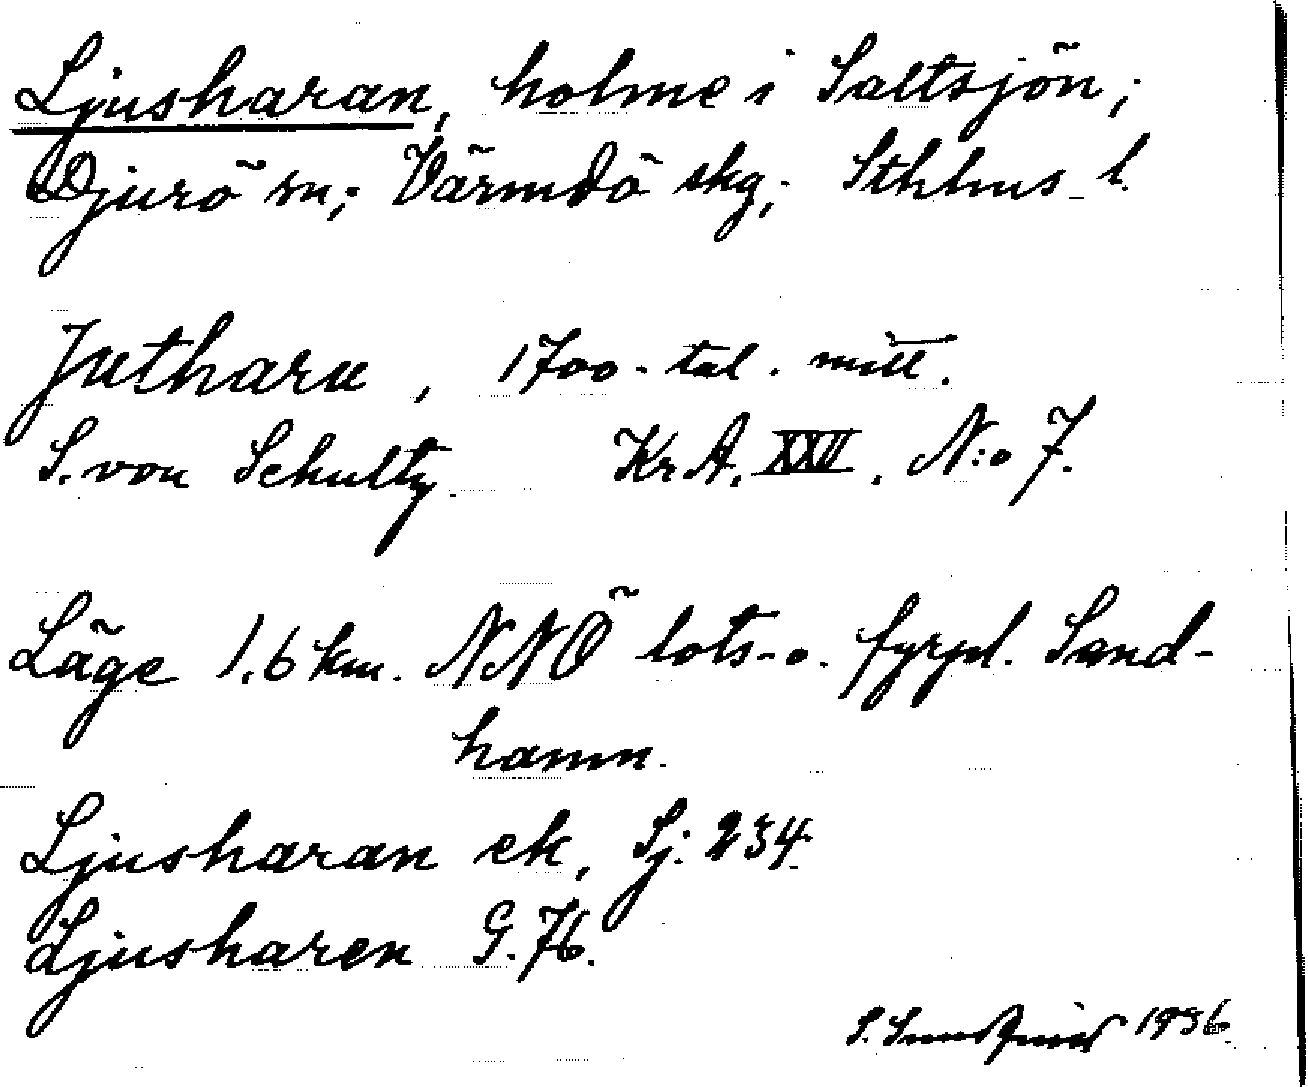 Ljusharan, holme i Saltsjön;
Djurö sn; Värmdö skg; Sthlms l.
Jutharu, 1700-tal. mitt.
S. von Schultz. Kr A. XXII. N:o 7.
Läge 1.6 km. NNÖ lots- o. fyrpl. Sand-
hamn.
Ljusharan ek, Sj. 234.
Ljusharen G. 76.
S. 1936